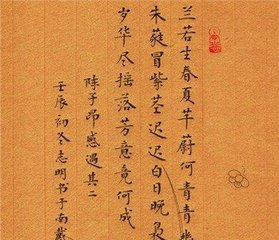 兰若生春夏芊蔚何青青幽
朱蕤冒紫茎迟迟白日晚袅
岁华尽摇落芳意竟何成
陈子昂感遇其二
壬辰初冬志明书于南戴